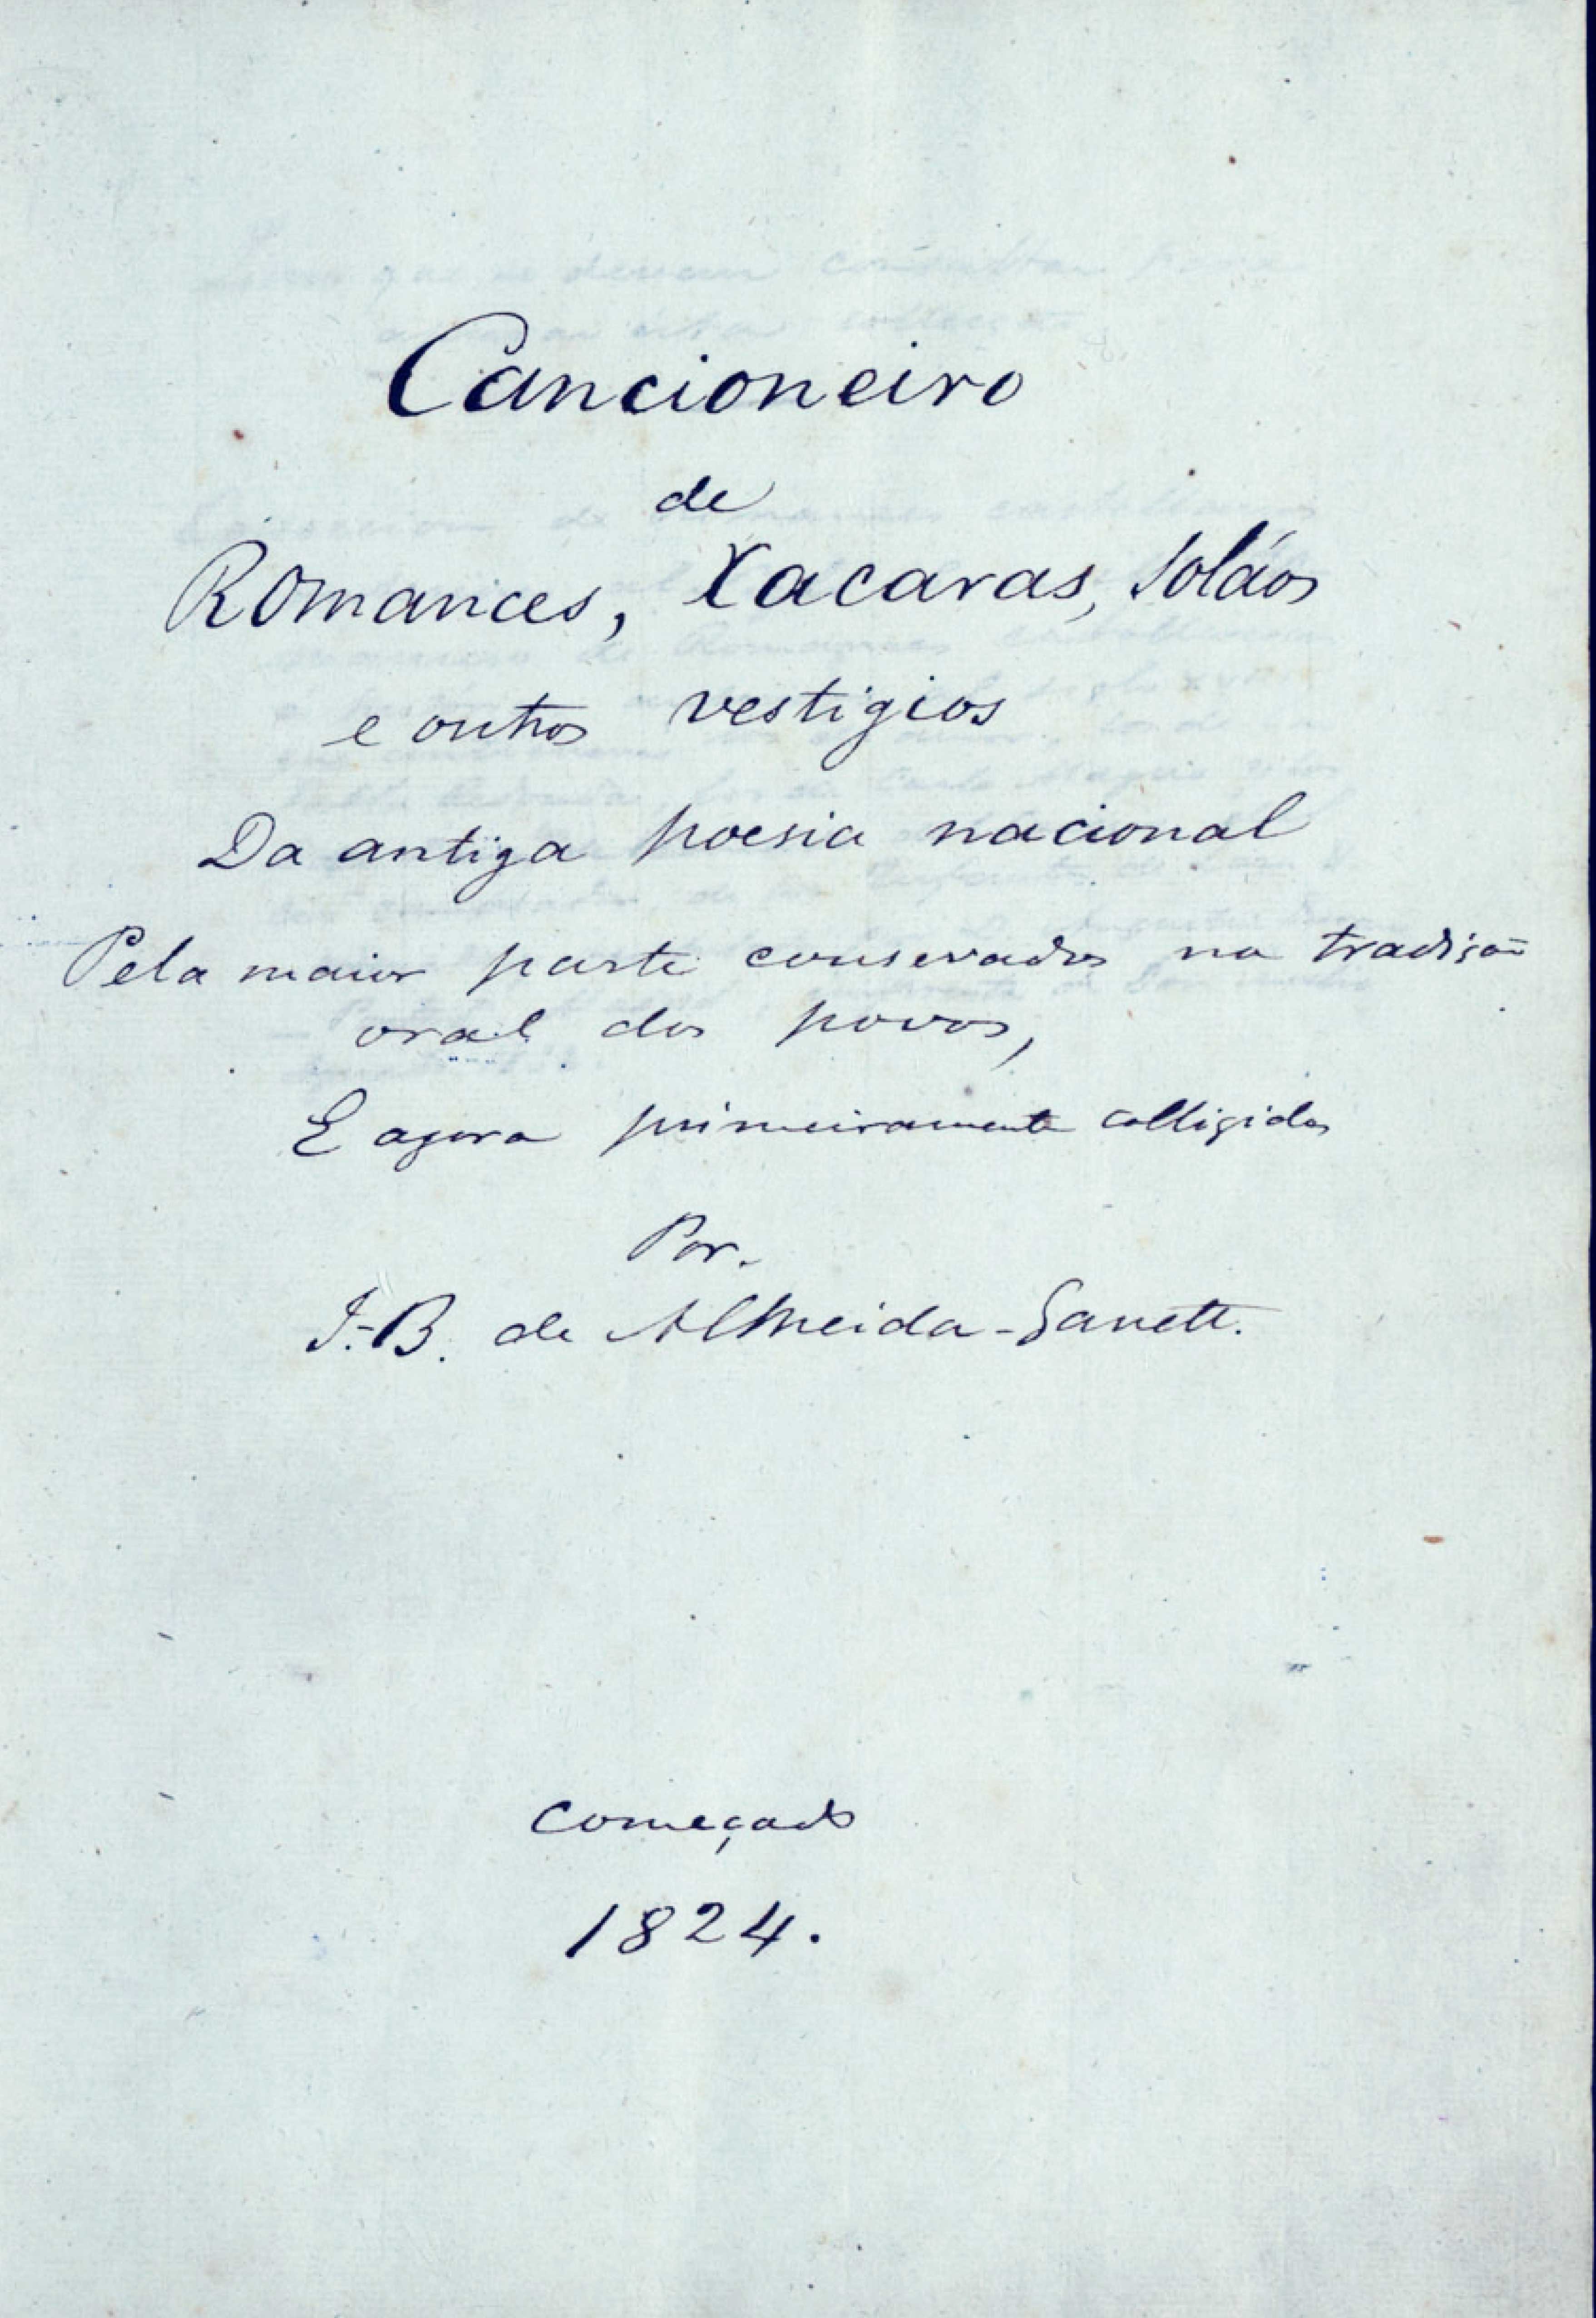 Cancioneiro
de
Romances, Xacaras, Soláos
e outros vestigios
Da antiga poesia nacional
Pela maior parte conservados na tradição
oral dos povos,
E agora primeiramente colligidos
Por.
J.-B. de Almeida-Garrett.
Começado
1824.